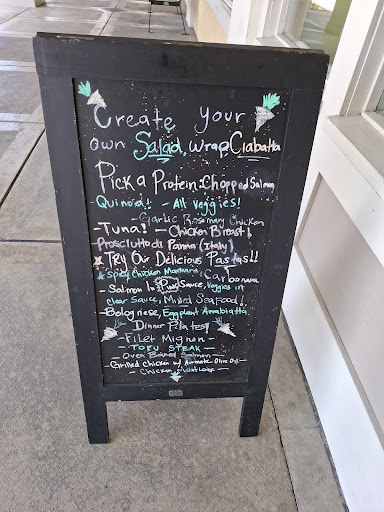 Create Your
own Salad, wrap, Ciabatta
Pick a Protein: Chopped Salmon
Quinoa! - All veggies!
- Garlic Rosemary Chicken
- Tuna! - Chicken Breast!
Prosciutto di Parma (Italy)
Try Our Delicious Pastas!!
Spicy Chicken Marinara, Carbonara
- Salmon In Pink Sauce, Veggies in
clear Sauce, Mixed Seafood!
- Bolognese, Eggplant Arrabiatta
Dinner Plates!
- Filet Mignon -
- TOFU STEAK -
- Oven Baked Salmon -
- Grilled Chicken w/ Aromatic Olive Oil -
- Chicken Meatloaf -